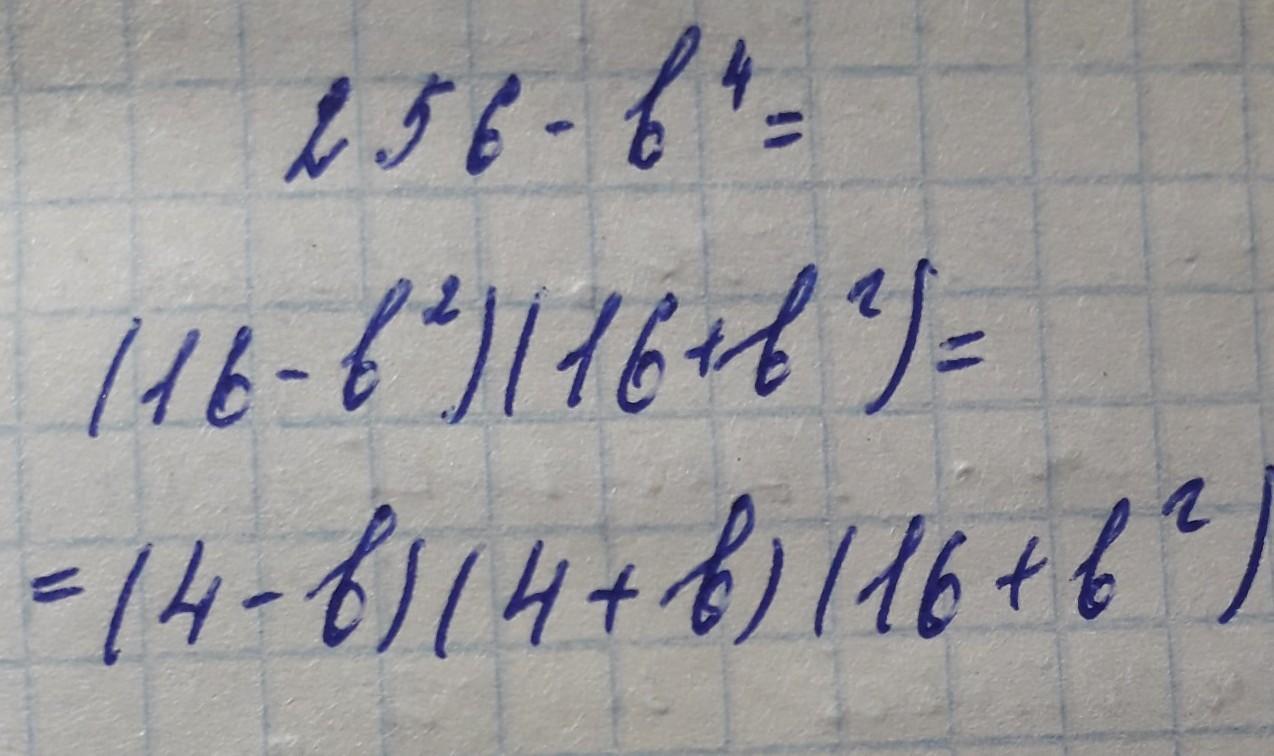 256 - b⁴ =
(16 - b²)(16 + b²) =
= (4 - b)(4 + b)(16 + b²)